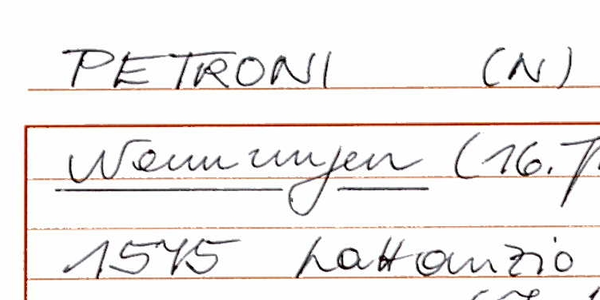 PETRONI (N)
Nennungen (16. J
1545 Lattanzio